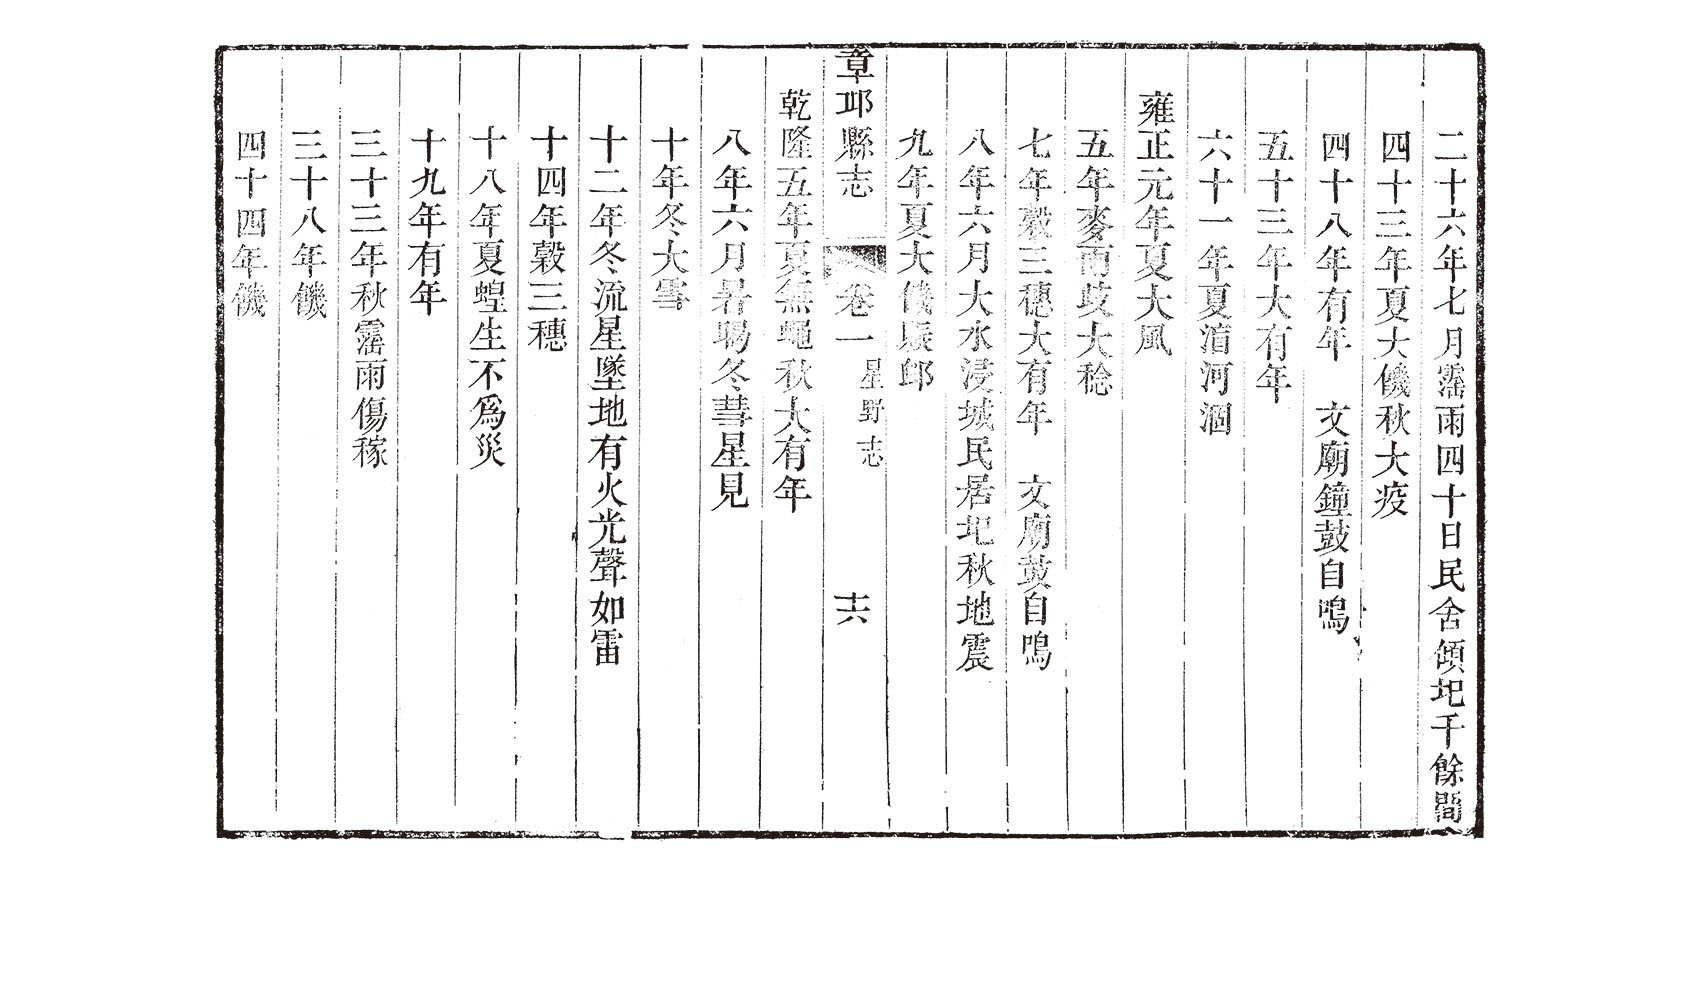 二十六年七月霪雨四十日民舍傾圯千餘間
四十三年夏大饑秋大疫
四十八年有年　文廟鐘鼓自鳴
五十三年大有年
六十一年夏湞河涸
雍正元年夏大風
五年麥兩歧大稔
七年穀三穗大有年　文廟鼓自鳴
八年六月大水浸城民居圯秋地震
九年夏大饑賑卹
章邱縣志　卷一　星野志　十六
乾隆五年夏無蠅秋大有年
八年六月暑暍冬彗星見
十年冬大雪
十二年冬流星墜地有火光聲如雷
十四年穀三穗
十八年夏蝗生不為災
十九年有年
三十三年秋霪雨傷稼
三十八年饑
四十四年饑